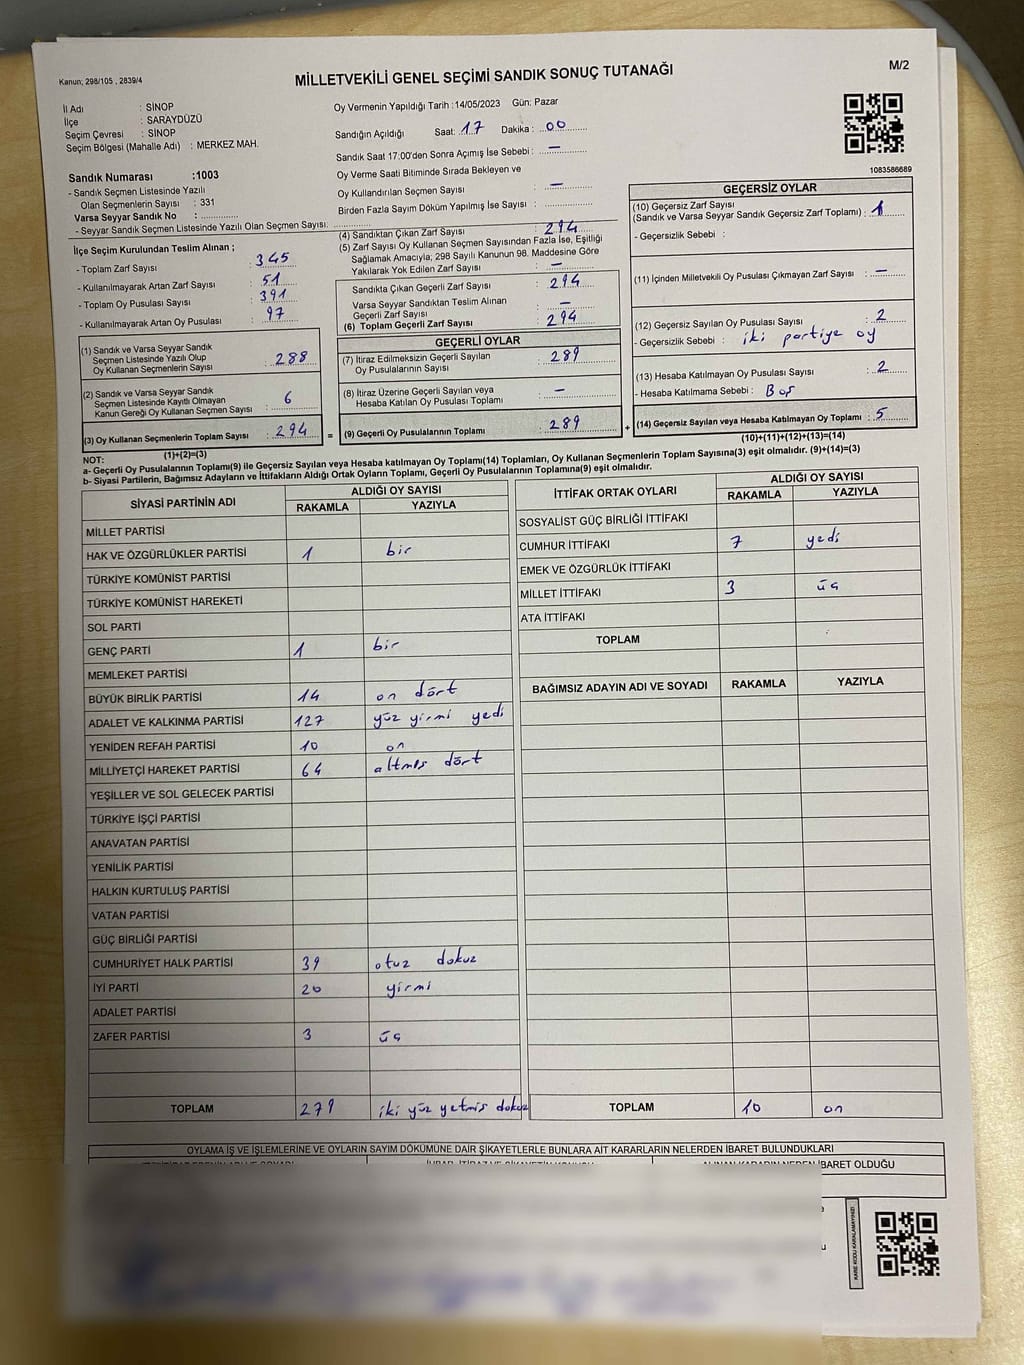 Kanun; 298/105 , 2839/4
MİLLETVEKİLİ GENEL SEÇİMİ SANDIK SONUÇ TUTANAĞI
M/2
İl Adı : SİNOP
İlçe : SARAYDÜZÜ
Seçim Çevresi : SİNOP
Seçim Bölgesi (Mahalle Adı) : MERKEZ MAH.
Sandık Numarası :1003
- Sandık Seçmen Listesinde Yazılı
Olan Seçmenlerin Sayısı : 331
Varsa Seyyar Sandık No : ..............
- Seyyar Sandık Seçmen Listesinde Yazılı Olan Seçmen Sayısı: ..............
Oy Vermenin Yapıldığı Tarih :14/05/2023 Gün: Pazar
Sandığın Açıldığı Saat: 17 Dakika : 00
Sandık Saat 17:00'den Sonra Açımış İse Sebebi : —
Oy Verme Saati Bitiminde Sırada Bekleyen ve
Oy Kullandırılan Seçmen Sayısı : —
Birden Fazla Sayım Döküm Yapılmış İse Sayısı : —
1083586689
İlçe Seçim Kurulundan Teslim Alınan ;
- Toplam Zarf Sayısı : 345
- Kullanılmayarak Artan Zarf Sayısı : 51
- Toplam Oy Pusulası Sayısı : 391
- Kullanılmayarak Artan Oy Pusulası : 97
(1) Sandık ve Varsa Seyyar Sandık
Seçmen Listesinde Yazılı Olup
Oy Kullanan Seçmenlerin Sayısı : 288
(2) Sandık ve Varsa Seyyar Sandık
Seçmen Listesinde Kayıtlı Olmayan
Kanun Gereği Oy Kullanan Seçmen Sayısı : 6
(3) Oy Kullanan Seçmenlerin Toplam Sayısı : 294
(1)+(2)=(3)
(4) Sandıktan Çıkan Zarf Sayısı : 294
(5) Zarf Sayısı Oy Kullanan Seçmen Sayısından Fazla İse, Eşitliği
Sağlamak Amacıyla; 298 Sayılı Kanunun 98. Maddesine Göre
Yakılarak Yok Edilen Zarf Sayısı : —
Sandıkta Çıkan Geçerli Zarf Sayısı : 294
Varsa Seyyar Sandıktan Teslim Alınan
Geçerli Zarf Sayısı : —
(6) Toplam Geçerli Zarf Sayısı : 294
GEÇERLİ OYLAR
(7) İtiraz Edilmeksizin Geçerli Sayılan
Oy Pusulalarının Sayısı : 289
(8) İtiraz Üzerine Geçerli Sayılan veya
Hesaba Katılan Oy Pusulası Toplamı : —
= (9) Geçerli Oy Pusulalarının Toplamı : 289 +
GEÇERSİZ OYLAR
(10) Geçersiz Zarf Sayısı
(Sandık ve Varsa Seyyar Sandık Geçersiz Zarf Toplamı) : 1
- Geçersizlik Sebebi :
(11) İçinden Milletvekili Oy Pusulası Çıkmayan Zarf Sayısı : —
(12) Geçersiz Sayılan Oy Pusulası Sayısı : 2
- Geçersizlik Sebebi : iki partiye oy
(13) Hesaba Katılmayan Oy Pusulası Sayısı : 2
- Hesaba Katılmama Sebebi : Boş
(14) Geçersiz Sayılan veya Hesaba Katılmayan Oy Toplamı : 5
(10)+(11)+(12)+(13)=(14)
NOT:
a- Geçerli Oy Pusulalarının Toplamı(9) ile Geçersiz Sayılan veya Hesaba katılmayan Oy Toplamı(14) Toplamları, Oy Kullanan Seçmenlerin Toplam Sayısına(3) eşit olmalıdır. (9)+(14)=(3)
b- Siyasi Partilerin, Bağımsız Adayların ve İttifakların Aldığı Ortak Oyların Toplamı, Geçerli Oy Pusulalarının Toplamına(9) eşit olmalıdır.
SİYASİ PARTİNİN ADI ALDIĞI OY SAYISI
RAKAMLA YAZIYLA
MİLLET PARTİSİ
HAK VE ÖZGÜRLÜKLER PARTİSİ 1 bir
TÜRKİYE KOMÜNİST PARTİSİ
TÜRKİYE KOMÜNİST HAREKETİ
SOL PARTİ
GENÇ PARTİ 1 bir
MEMLEKET PARTİSİ
BÜYÜK BİRLİK PARTİSİ 14 on dört
ADALET VE KALKINMA PARTİSİ 127 yüz yirmi yedi
YENİDEN REFAH PARTİSİ 10 on
MİLLİYETÇİ HAREKET PARTİSİ 64 altmış dört
YEŞİLLER VE SOL GELECEK PARTİSİ
TÜRKİYE İŞÇİ PARTİSİ
ANAVATAN PARTİSİ
YENİLİK PARTİSİ
HALKIN KURTULUŞ PARTİSİ
VATAN PARTİSİ
GÜÇ BİRLİĞİ PARTİSİ
CUMHURİYET HALK PARTİSİ 39 otuz dokuz
İYİ PARTİ 20 yirmi
ADALET PARTİSİ
ZAFER PARTİSİ 3 üç
TOPLAM 279 iki yüz yetmiş dokuz
İTTİFAK ORTAK OYLARI ALDIĞI OY SAYISI
RAKAMLA YAZIYLA
SOSYALİST GÜÇ BİRLİĞİ İTTİFAKI
CUMHUR İTTİFAKI 7 yedi
EMEK VE ÖZGÜRLÜK İTTİFAKI
MİLLET İTTİFAKI 3 üç
ATA İTTİFAKI
TOPLAM
BAĞIMSIZ ADAYIN ADI VE SOYADI RAKAMLA YAZIYLA
TOPLAM 10 on
OYLAMA İŞ VE İŞLEMLERİNE VE OYLARIN SAYIM DÖKÜMÜNE DAİR ŞİKAYETLERLE BUNLARA AİT KARARLARIN NELERDEN İBARET BULUNDUKLARI
İBARET OLDUĞU
KARE KODU KARALAMAYINIZ!